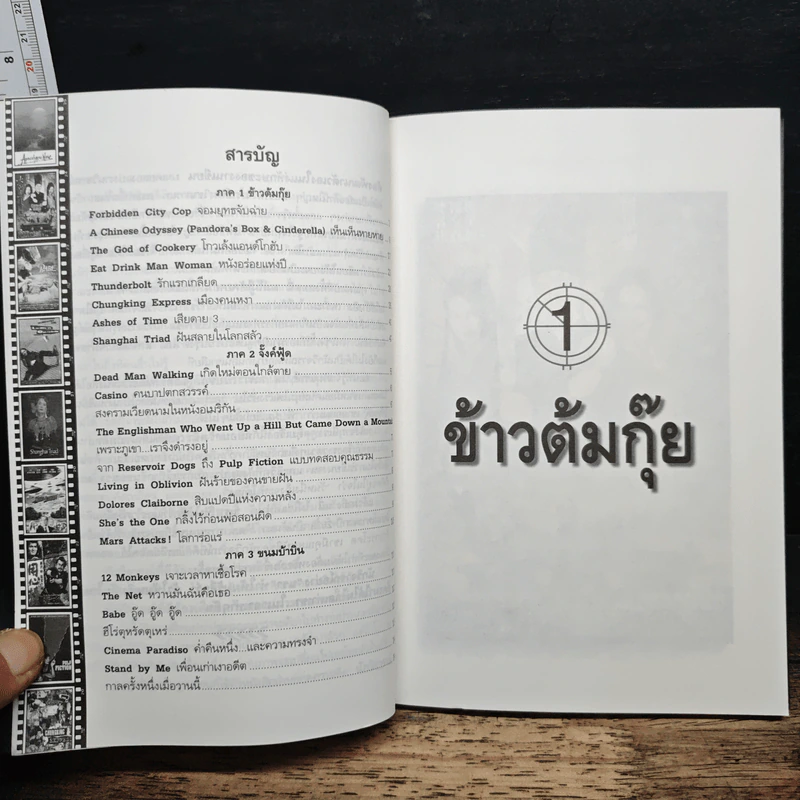 8
22
21
20
19
Apocalypse Now
Shanghai Triad
PULP FICTION
สารบัญ
ภาค 1 ข้าวต้มกุ๊ย
Forbidden City Cop จอมยุทธจับฉ่าย
A Chinese Odyssey (Pandora's Box & Cinderella) เห็นเห็นหายหาย
The God of Cookery โกวเล้งแอนด์โกฮับ
Eat Drink Man Woman หนังอร่อยแห่งปี
Thunderbolt รักแรกเกลียด
Chungking Express เมืองคนเหงา
Ashes of Time เสียดาย 3
Shanghai Triad ฝันสลายในโลกสลัว
ภาค 2 จั๊งค์ฟู้ด
Dead Man Walking เกิดใหม่ตอนใกล้ตาย
Casino คนบาปตกสวรรค์
สงครามเวียดนามในหนังอเมริกัน
The Englishman Who Went Up a Hill But Came Down a Mountai
เพราะภูเขา...เราจึงดำรงอยู่
จาก Reservoir Dogs ถึง Pulp Fiction แบบทดสอบคุณธรรม
Living in Oblivion ฝันร้ายของคนขายฝัน
Dolores Claiborne สิบแปดปีแห่งความหลัง
She's the One กลิ้งไว้ก่อนพ่อสอนผิด
Mars Attacks! โลการ่อแร่
ภาค 3 ขนมบ้าบิ่น
12 Monkeys เจาะเวลาหาเชื้อโรค
The Net หวานมันฉันคือเธอ
Babe อู๊ด อู๊ด อู๊ด
ฮีโร่ตุหรัดตุเหร่
Cinema Paradiso ค่ำคืนหนึ่ง...และความทรงจำ
Stand by Me เพื่อนเก่าเงาอดีต
กาลครั้งหนึ่งเมื่อวานนี้
1
ข้าวต้มกุ๊ย